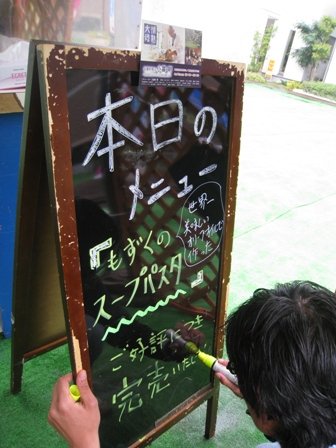 本日の
メニュー
世界一
美味しい
作った
「もずくの
スープパスタ」
ご好評につき
完売いた